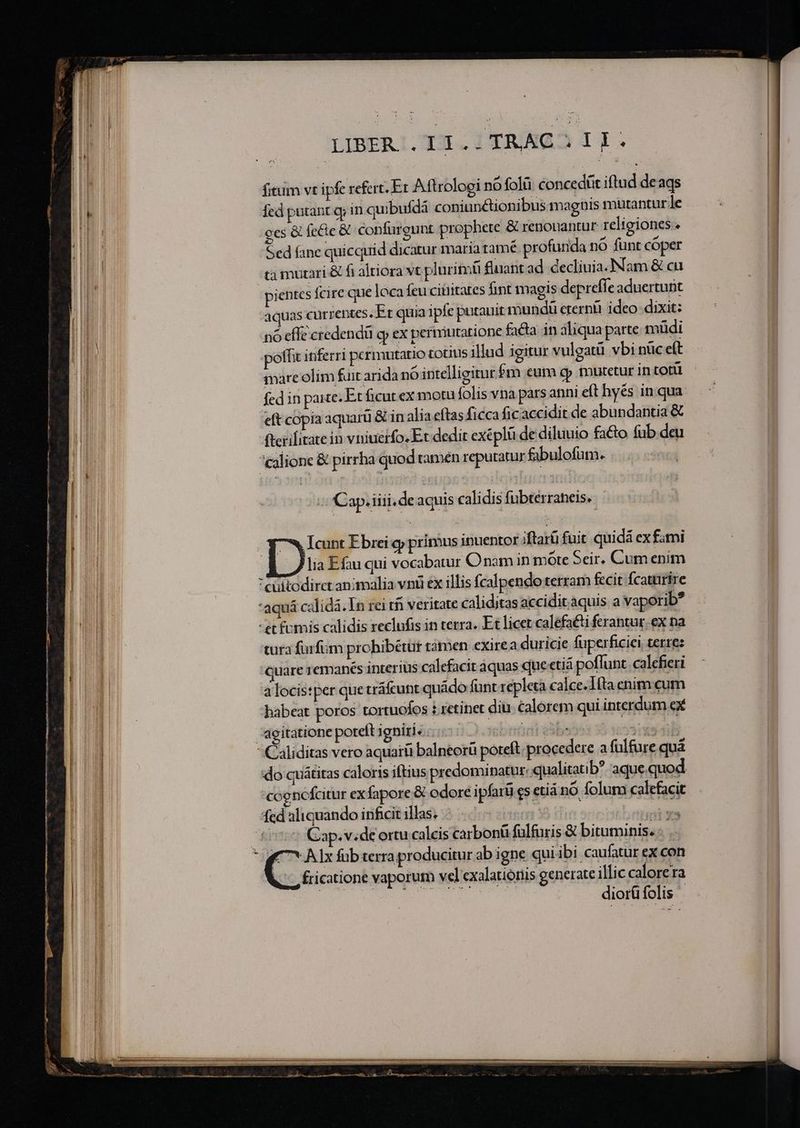 LIBER . II . TRAC . II .
ſitum vt ipſe refert. Et Aſtrologi nō ſolū concedūt iſtud de aqs
ſed putant ꝙ in quibuſdā coniunctionibus magnis mutantur le
ges & ſecte & conſurgunt prophete & renouantur religiones.
Sed ſane quicquid dicatur maria tamē profunda nō ſunt coper
ta mutari & ſi altiora vt plurimū fluant ad decliuia. Nam & cu
pientes ſcire que loca ſeu ciuitates ſint magis depreſſe aduertunt
aquas currentes. Et quia ipſe putauit mundū eternū ideo dixit:
nō eſſe credendū ꝙ ex permutatione facta in aliqua parte mūdi
poſſit inferri permutatio totius illud igitur vulgatū vbi nūc eſt
mare olim fuit arida nō intelligitur ſm eum ꝙ mutetur in totū
ſed in parte. Et ſicut ex motu ſolis vna pars anni eſt hyēs in qua
eſt copia aquarū & in alia eſtas ſicca ſic accidit de abundantia &
ſterilitate in vniuerſo. Et dedit exēplū de diluuio facto ſub deu
calione & pirrha quod tamen reputatur fabuloſum.
Cap. iiii. de aquis calidis ſubterraneis.
DIcunt Ebrei ꝙ primus inuentor iſtarū fuit quidā ex fami
lia Eſau qui vocabatur Onam in mōte Seir. Cum enim
cuſtodiret animalia vnū ex illis ſcalpendo terram fecit ſcaturire
aquā calidā. In rei tn̄ veritate caliditas accidit aquis a vaporibꝰ
et fumis calidis recluſis in terra. Et licet calefacti ferantur ex na
tura ſurſum prohibētur tamen exire a duricie ſuperficiei terre:
quare remanēs interius calefacit aquas que etiā poſſunt calefieri
a locis: per que trāſeunt quādo ſunt repleta calce. Iſta enim cum
habeat poros tortuoſos : retinet diu calorem qui interdum ex
agitatione poteſt igniri.
Caliditas vero aquarū balneorū poteſt procedere a ſulfure quā
do quātitas caloris iſtius predominatur qualitatibꝰ aque quod
cognoſcitur ex ſapore & odore ipſarū qs etiā nō ſolum calefacit
ſed aliquando inficit illas.
Cap. v. de ortu calcis carbonū ſulfuris & bituminis.
CAlx ſub terra producitur ab igne qui ibi cauſatur ex con
fricatione vaporum vel exalationis generate illic calore ra
diorū ſolis